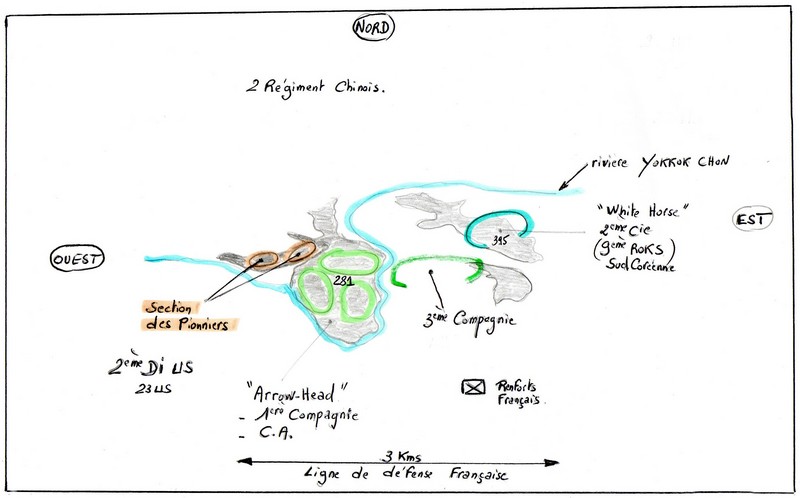 NORD
2 Régiment Chinois.
rivière YOKKOK CHON
"White Horse"
2ème Cie
(9ème ROKS)
Sud Coréenne
EST
395
OUEST
281
Section
des Pionniers
3ème Compagnie
2ème Di US
23 US
"Arrow-Head"
- 1ère Compagnie
- C.A.
Renforts
Français.
3 Kms
Ligne de défense Française